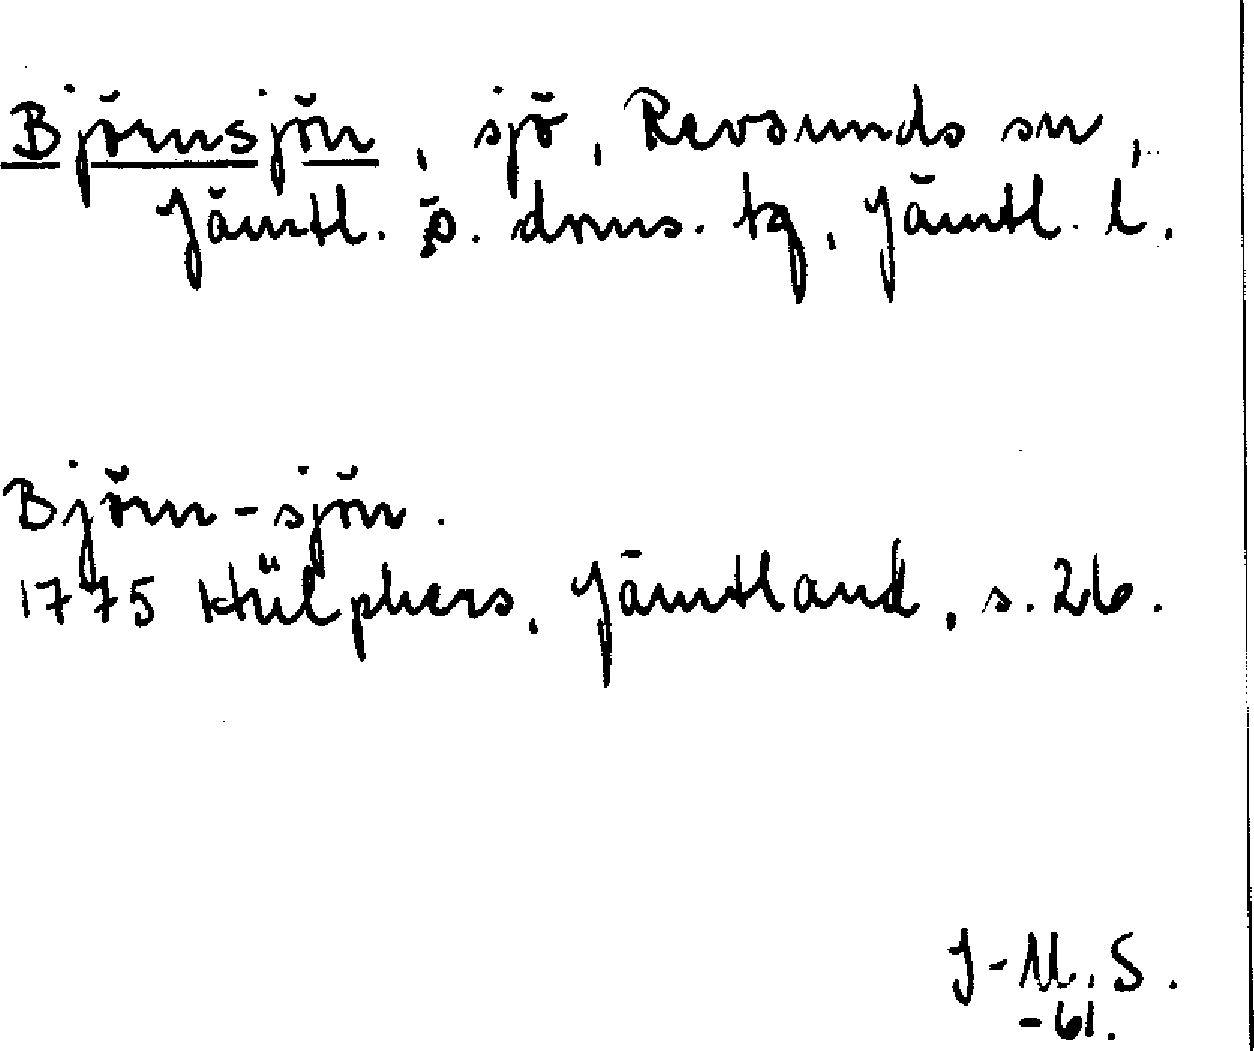 Björnsjön, sjö, Revsunds sn,
Jämtl. ö. doms. tg, Jämtl. l.
Björn-sjön.
1775 Hülphers, Jämtland, s. 26.
J-M. S.
-61.